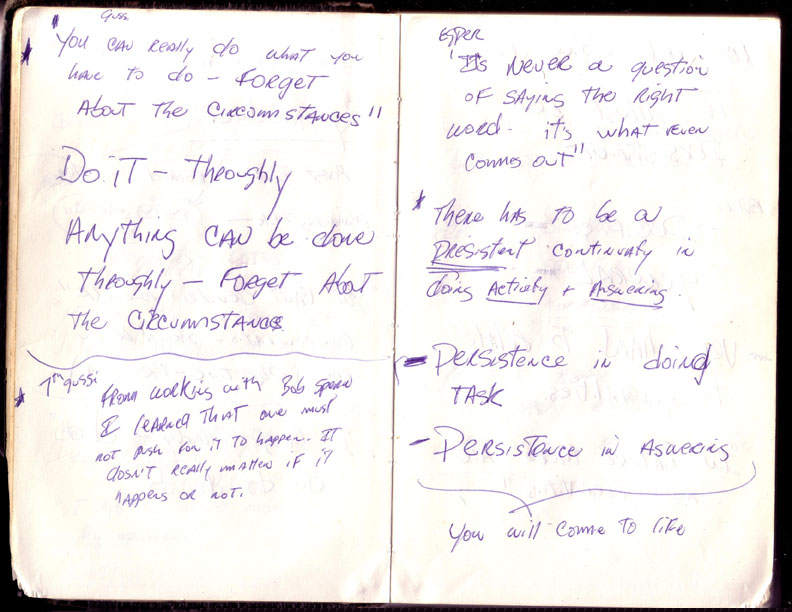 Gussi
"You can really do what you
have to do - Forget
About the Circumstances"
Do iT - throughly
Anything CAN be done
throughly - Forget About
the Circumstances
Tim gussi
From working with Bob
I learned THAT one must
not push for it to happen. IT
dosn't really matter if it
happens or not.
Esper
"Its never a question
of saying the right
word. it's what ever
comes out"
There has to be a
Presistent continuaty in
doing Activity + Answering.
- Persistence in doing
TASK
- Persistence in Aswering
You will come to life